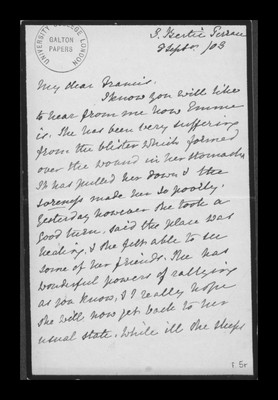 UNIVERSITY COLLEGE LONDON
GALTON
PAPERS
5, Bertie Terrace
2 Sept /03
My dear Francis.
I know you will like
to hear from me how Emma
is. She has been very suffering
from the blister which formed
over the wound in her stomach.
It has pulled her down & the
soreness made her so poorly.
Yesterday however she took a
good turn, said the place was
healing, & she felt able to see
some of her friends. She has
wonderful powers of rallying
as you know, & I really hope
she will now get back to her
usual state. While ill she sleeps
5r